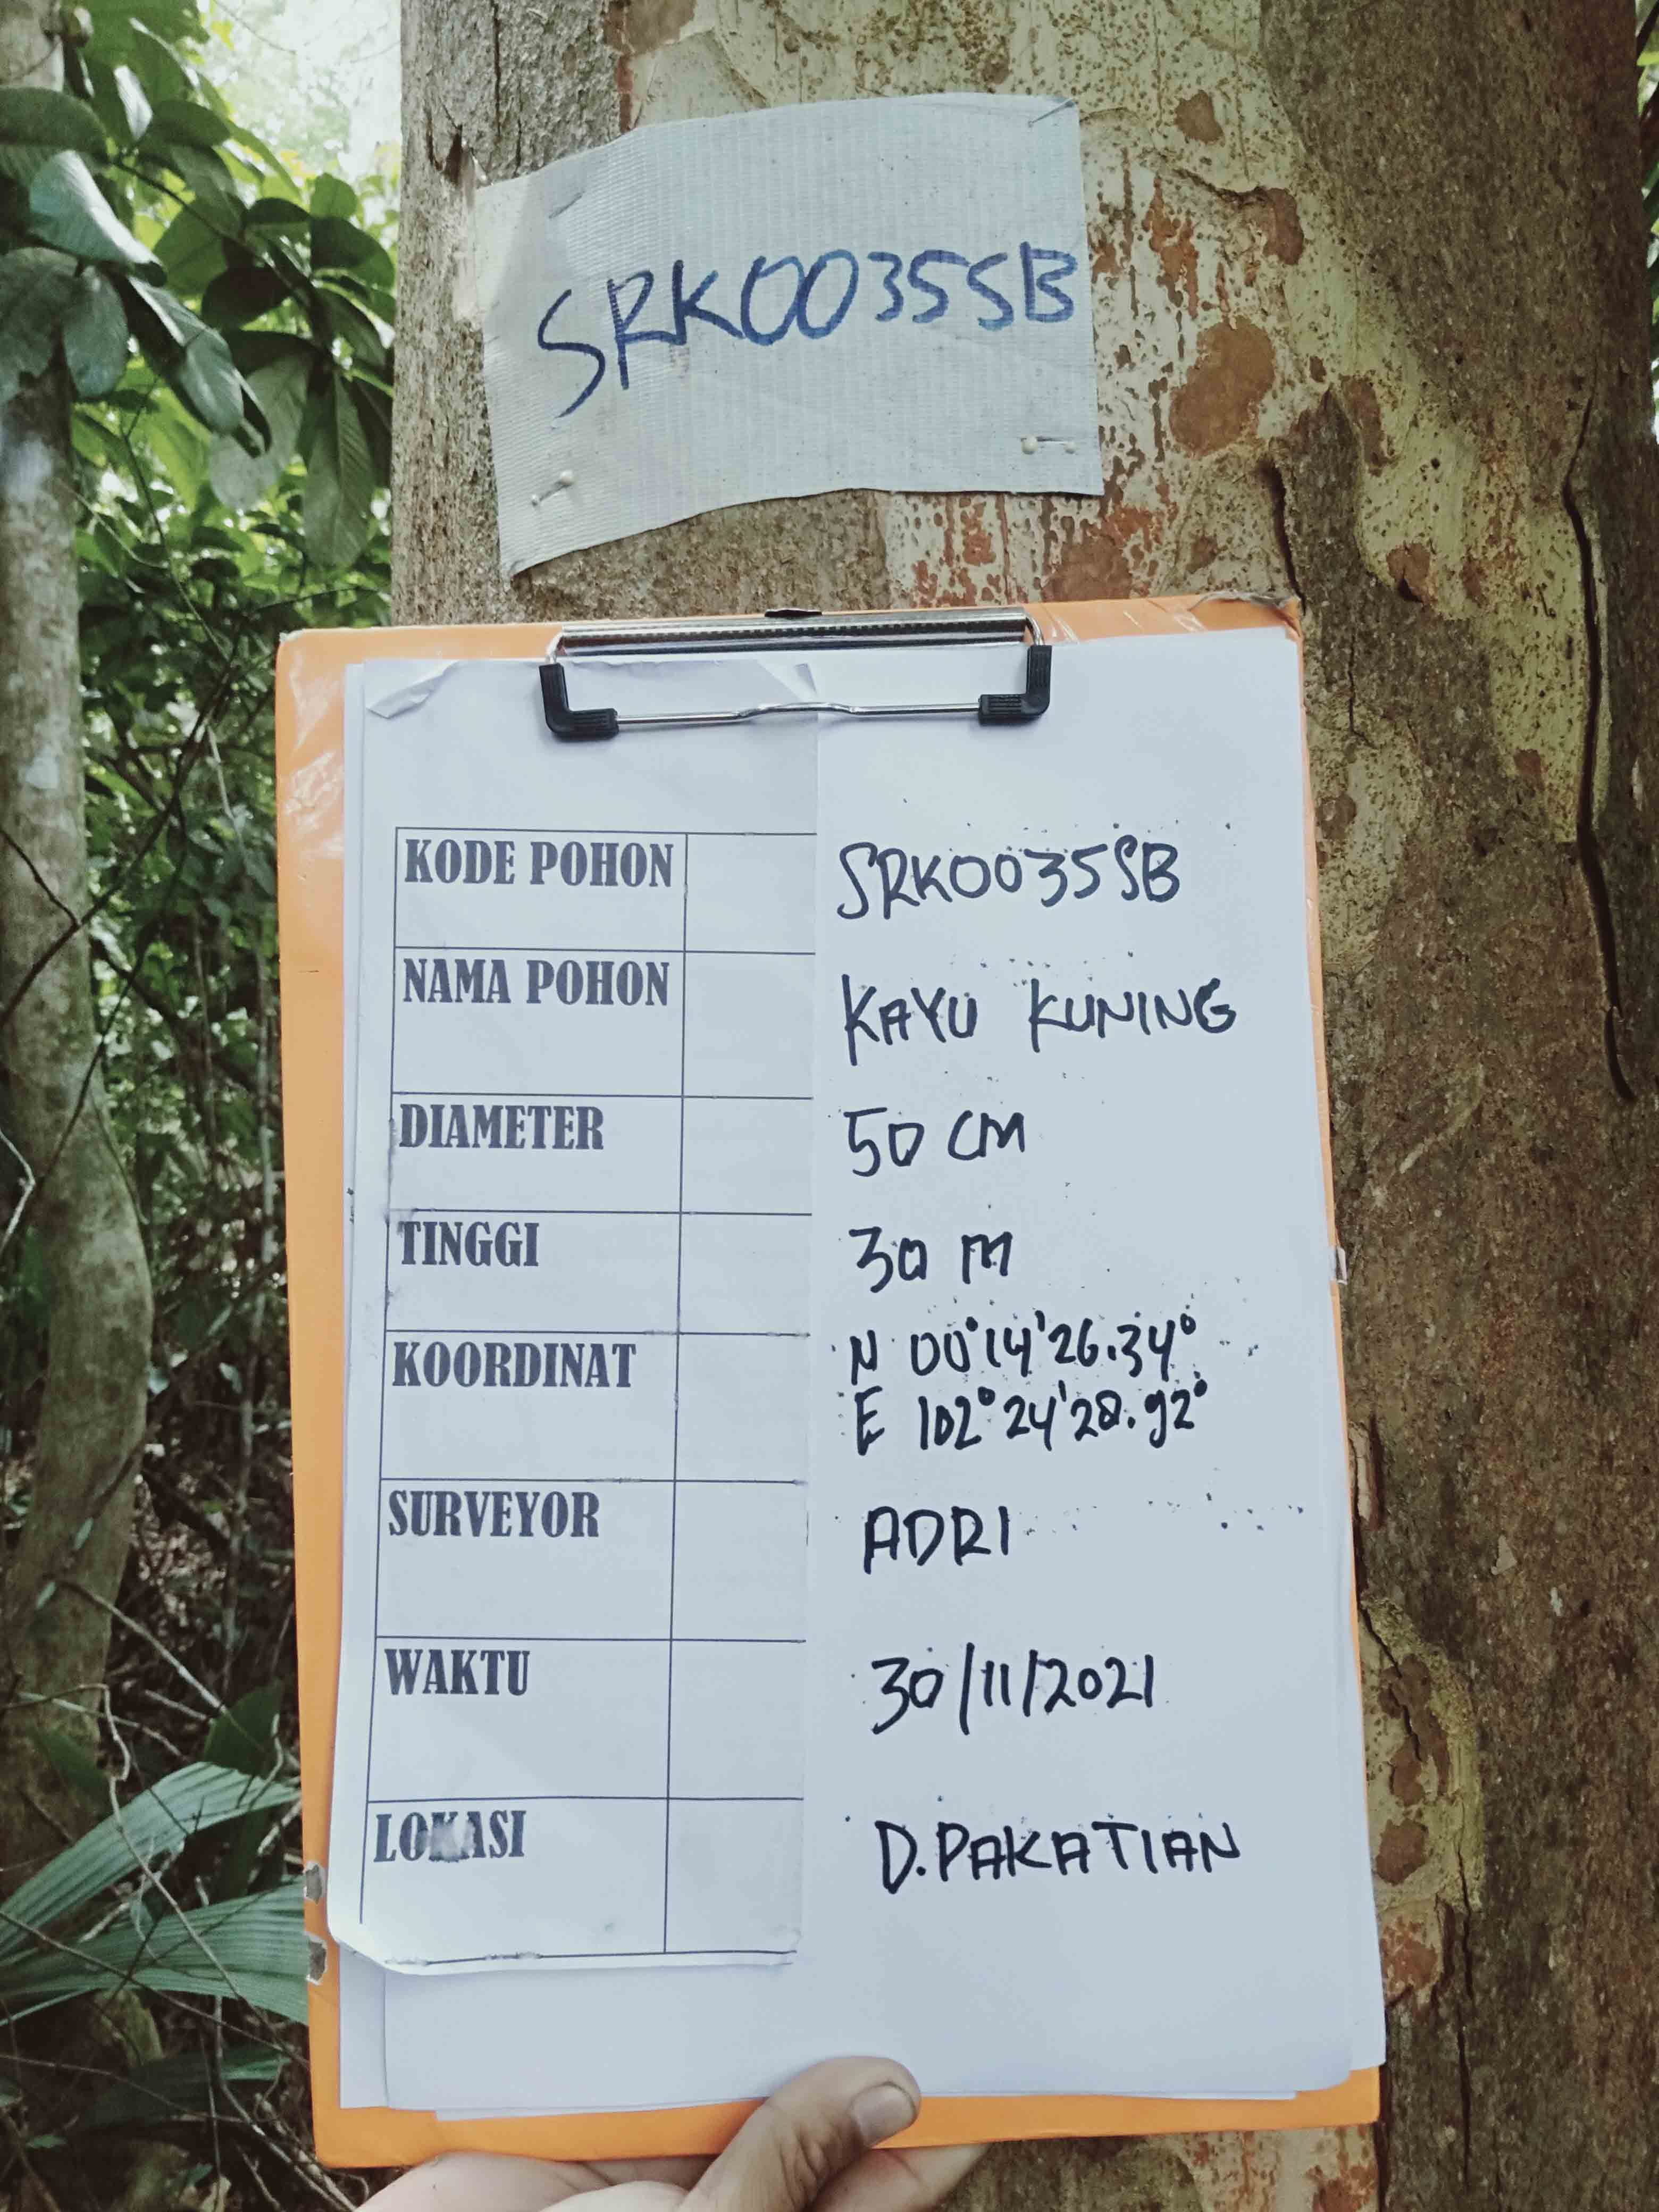 SRK0035SB
KODE POHON SRK0035SB
NAMA POHON KAYU KUNING
DIAMETER 50 CM
TINGGI 30 M
KOORDINAT N 00°14'26.34°
E 102°24'28.92°
SURVEYOR ADRI
WAKTU 30/11/2021
LOKASI D.PAKATIAN